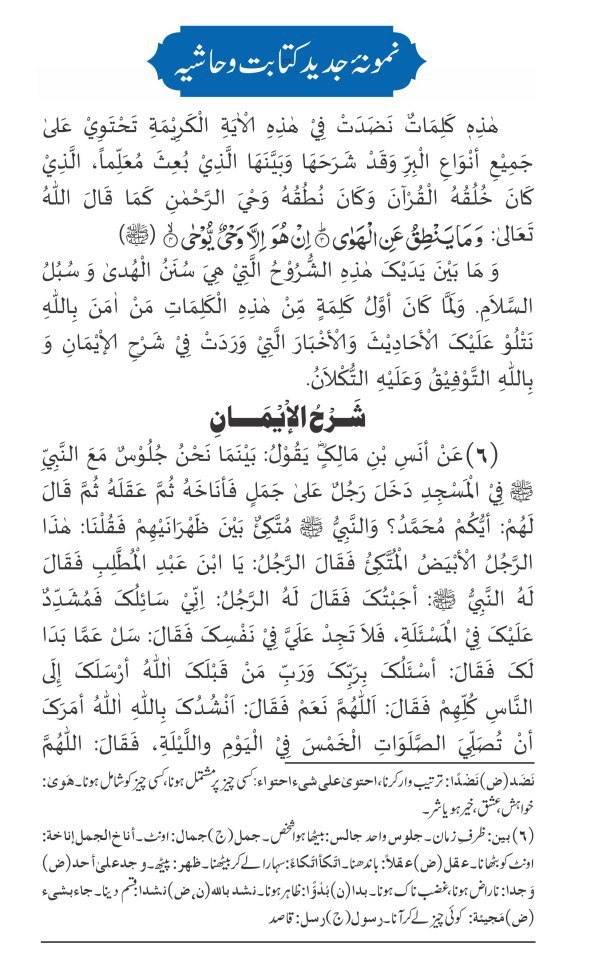 نمونۂ جدید کتابت و حاشیہ
هٰذِهٖ كَلِمَاتٌ نَضَدَتْ فِيْ هٰذِهِ الْاٰيَةِ الْكَرِيْمَةِ تَحْتَوِيْ عَلىٰ
جَمِيْعِ أَنْوَاعِ الْبِرِّ وَقَدْ شَرَحَهَا وَبَيَّنَهَا الَّذِيْ بُعِثَ مُعَلِّماً، الَّذِيْ
كَانَ خُلُقُهُ الْقُرْآنَ وَكَانَ نُطْقُهُ وَحْيَ الرَّحْمٰنِ كَمَا قَالَ اللهُ
تَعَالىٰ: وَمَا يَنْطِقُ عَنِ الْهَوٰى ۞ اِنْ هُوَ اِلَّا وَحْىٌ يُّوْحٰى ۞ (ﷺ)
وَ هَا بَيْنَ يَدَيْكَ هٰذِهِ الشُّرُوْحُ الَّتِيْ هِيَ سُنَنُ الْهُدىٰ وَ سُبُلُ
السَّلاَمِ. وَلَمَّا كَانَ أَوَّلُ كَلِمَةٍ مِّنْ هٰذِهِ الْكَلِمَاتِ مَنْ اٰمَنَ بِاللهِ
نَتْلُوْ عَلَيْكَ الْأَحَادِيْثَ وَالْأَخْبَارَ الَّتِيْ وَرَدَتْ فِيْ شَرْحِ الْإِيْمَانِ وَ
بِاللهِ التَّوْفِيْقُ وَعَلَيْهِ التُّكْلاَنُ.
شَرْحُ الْإِيْمَانِ
(٦) عَنْ أَنَسِ بْنِ مَالِكٍؓ يَقُوْلُ: بَيْنَمَا نَحْنُ جُلُوْسٌ مَعَ النَّبِيِّ
ﷺ فِيْ الْمَسْجِدِ دَخَلَ رَجُلٌ عَلىٰ جَمَلٍ فَأَنَاخَهُ ثُمَّ عَقَلَهُ ثُمَّ قَالَ
لَهُمْ: أَيُّكُمْ مُحَمَّدُ؟ وَالنَّبِيُّ ﷺ مُتَّكِئٌ بَيْنَ ظَهْرَانَيْهِمْ فَقُلْنَا: هٰذَا
الرَّجُلُ الْأَبْيَضُ الْمُتَّكِئُ فَقَالَ الرَّجُلُ: يَا ابْنَ عَبْدِ الْمُطَّلِبِ فَقَالَ
لَهُ النَّبِيُّ ﷺ: أَجَبْتُكَ فَقَالَ لَهُ الرَّجُلُ: إِنِّيْ سَائِلُكَ فَمُشَدِّدٌ
عَلَيْكَ فِيْ الْمَسْئَلَةِ، فَلاَ تَجِدْ عَلَيَّ فِيْ نَفْسِكَ فَقَالَ: سَلْ عَمَّا بَدَا
لَكَ فَقَالَ: أَسْئَلُكَ بِرَبِّكَ وَرَبِّ مَنْ قَبْلَكَ اٰللهُ أَرْسَلَكَ إِلَى
النَّاسِ كُلِّهِمْ فَقَالَ: اَللّٰهُمَّ نَعَمْ فَقَالَ: اَنْشُدُكَ بِاللهِ اٰللهُ أَمَرَكَ
أَنْ تُصَلِّيَ الصَّلَوَاتِ الْخَمْسَ فِيْ الْيَوْمِ واللَّيْلَةِ، فَقَالَ: اَللّٰهُمَّ
نَضَد (ض) نَضْدًا: ترتیب وار کرنا، احتویٰ علی شیء احتواء: کسی چیز پر مشتمل ہونا، کسی چیز کو شامل ہونا۔ هَویٰ:
خواہش، عشق، خیر ہو یا شر۔
(٦) بین: ظرفِ زمان۔ جلوس واحد جالس: بیٹھا ہوا شخص۔ جمل (ج) جمال: اونٹ۔ أناخ الجمل إناخة:
اونٹ کو بٹھانا۔ عقل (ض) عقلاً: باندھنا۔ اتکأ اتکاءً: سہارا لے کر بیٹھنا۔ ظهر: پیٹھ۔ وجد علیٰ أحد (ض)
وَجدا: ناراض ہونا، غضب ناک ہونا۔ بدا (ن) بَدْوًا: ظاہر ہونا۔ نشد باللہ (ن،ض) نشدا: قسم دینا۔ جاء بشیء
(ض) مَجیئة: کوئی چیز لے کر آنا۔ رسول (ج) رسل: قاصد